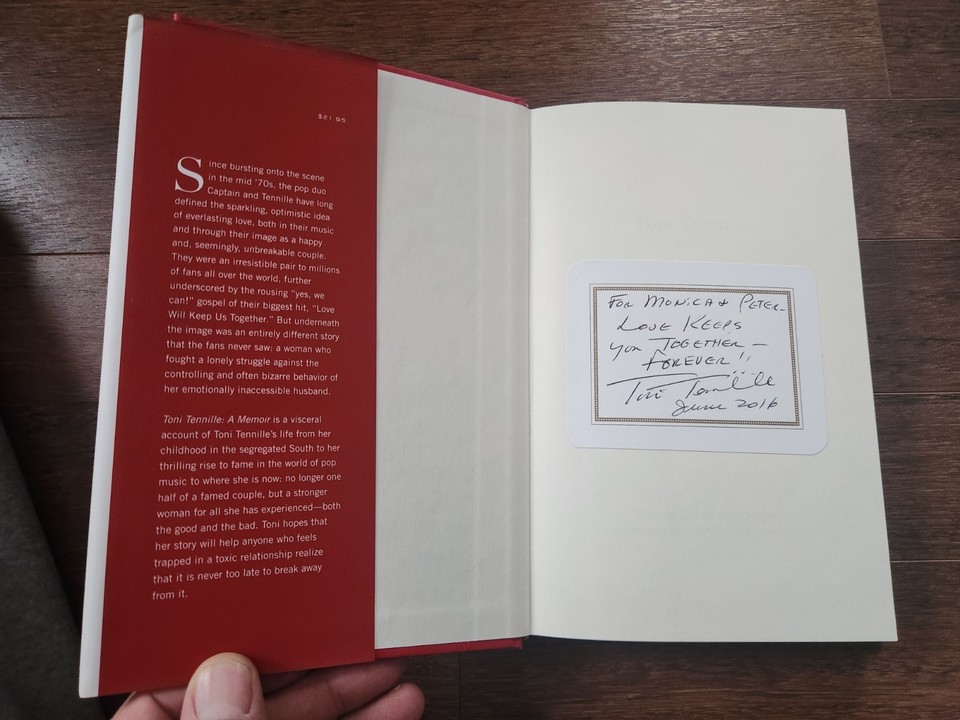 $21.95
Since bursting onto the scene
in the mid '70s, the pop duo
Captain and Tennille have long
defined the sparkling, optimistic idea
of everlasting love, both in their music
and through their image as a happy
and, seemingly, unbreakable couple.
They were an irresistible pair to millions
of fans all over the world, further
underscored by the rousing "yes, we
can!" gospel of their biggest hit, "Love
Will Keep Us Together." But underneath
the image was an entirely different story
that the fans never saw: a woman who
fought a lonely struggle against the
controlling and often bizarre behavior of
her emotionally inaccessible husband.
Toni Tennille: A Memoir is a visceral
account of Toni Tennille's life from her
childhood in the segregated South to her
thrilling rise to fame in the world of pop
music to where she is now: no longer one
half of a famed couple, but a stronger
woman for all she has experienced—both
the good and the bad. Toni hopes that
her story will help anyone who feels
trapped in a toxic relationship realize
that it is never too late to break away
from it.
FOR MONICA & PETER-
LOVE KEEPS
YOU TOGETHER —
FOREVER!!
Toni Tennille
June 2016